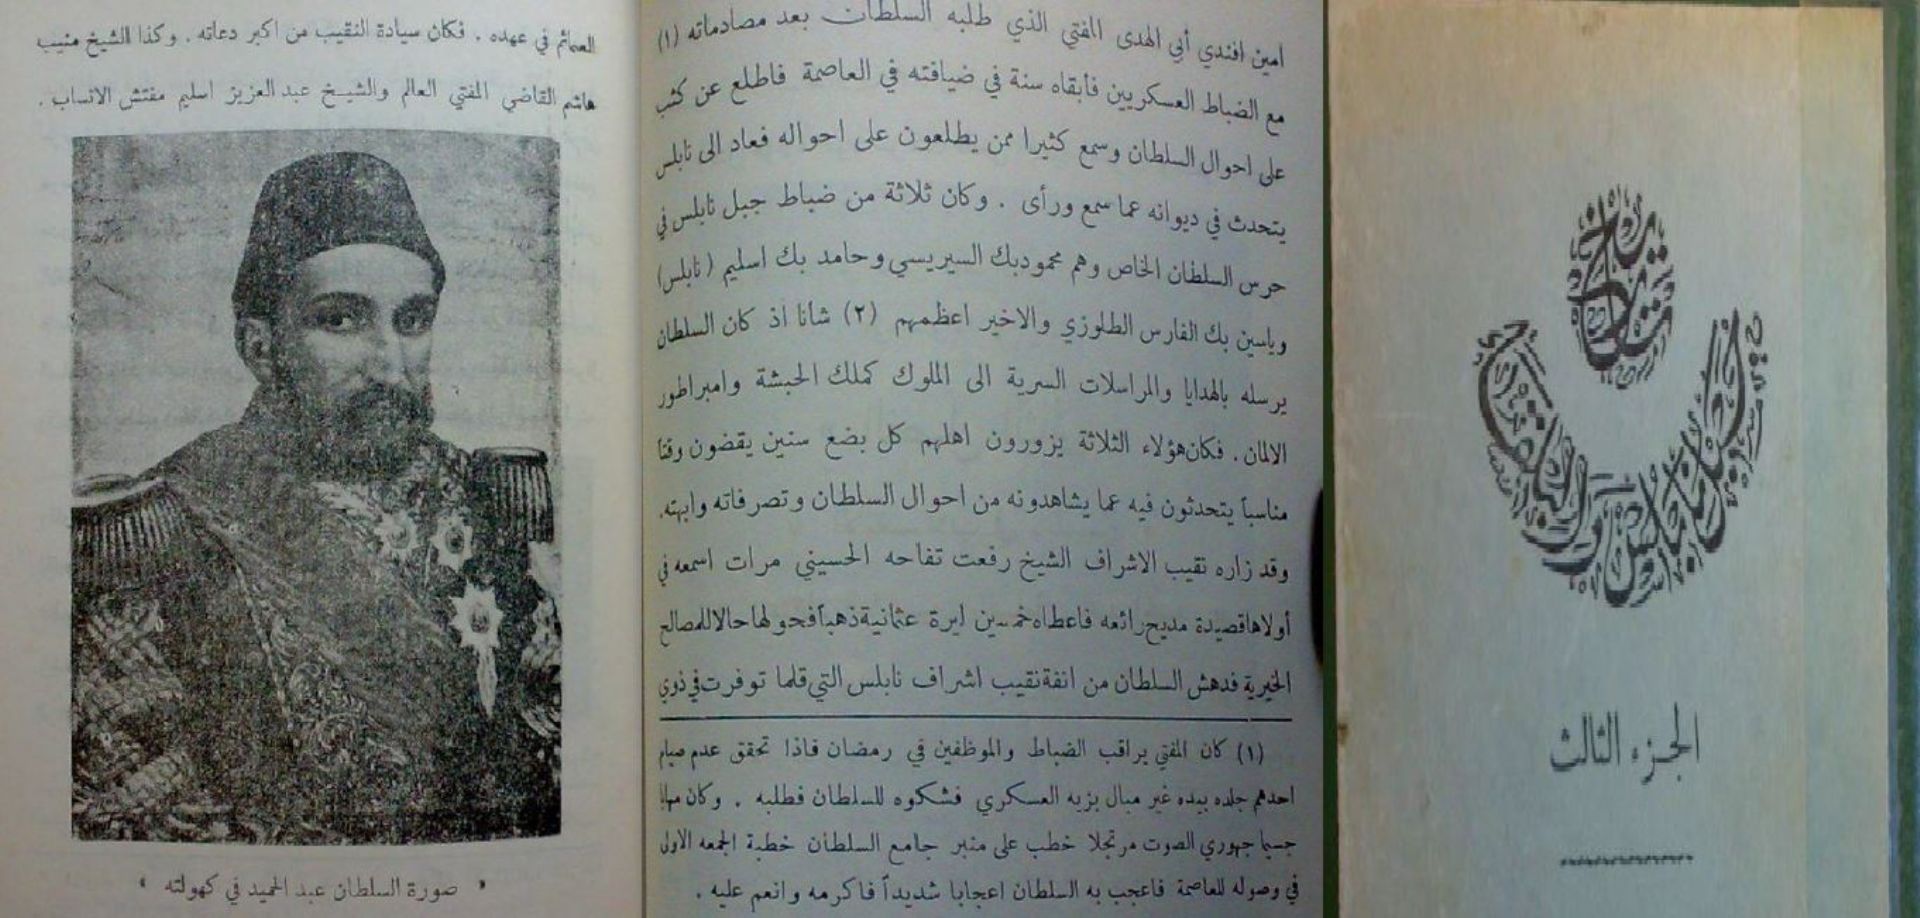 امين افندي أبي الهدى المفتي الذي طلبه السلطان بعد مصادماته (١)
مع الضباط العسكريين فأبقاه سنة في ضيافته في العاصمة فاطلع عن كثب
على احوال السلطان وسمع كثيرا ممن يطلعون على احواله فعاد الى نابلس
يتحدث في ديوانه عما سمع ورأى . وكان ثلاثة من ضباط جبل نابلس في
حرس السلطان الخاص وهم محمود بك السيريسي وحامد بك اسليم (نابلس)
وياسين بك الفارس الطلوزي والاخير اعظمهم (٢) شأنا اذ كان السلطان
يرسله بالهدايا والمراسلات السرية الى الملوك كملك الحبشة وامبراطور
الالمان . فكان هؤلاء الثلاثة يزورون اهلهم كل بضع سنين يقضون وقتا
مناسباً يتحدثون فيه عما يشاهدونه من احوال السلطان وتصرفاته وابهته .
وقد زاره نقيب الاشراف الشيخ رفعت تفاحه الحسيني مرات اسمعه في
أولاها قصيدة مديح رائعه فاعطاه خمسين ليرة عثمانية ذهباً فحولها حالا للمصالح
الخيرية فدهش السلطان من انفة نقيب اشراف نابلس التي قلما توفرت في ذوي
(١) كان المفتي يراقب الضباط والموظفين في رمضان فاذا تحقق عدم صيام
احدهم جلده بيده غير مبال بزيه العسكري فشكوه للسلطان فطلبه . وكان مهابا
جسيما جهوري الصوت مرتجلا خطب على منبر جامع السلطان خطبة الجمعه الاولى
في وصوله للعاصمة فاعجب به السلطان اعجابا شديداً فاكرمه وانعم عليه .
العمائم في عهده . فكان سيادة النقيب من اكبر دعاته . وكذا الشيخ منيب
هاشم القاضي المفتي العالم والشيخ عبد العزيز اسليم مفتش الانساب .
« صورة السلطان عبد الحميد في كهولته »
تاريخ
جبل نابلس والبلقاء
الجزء الثالث